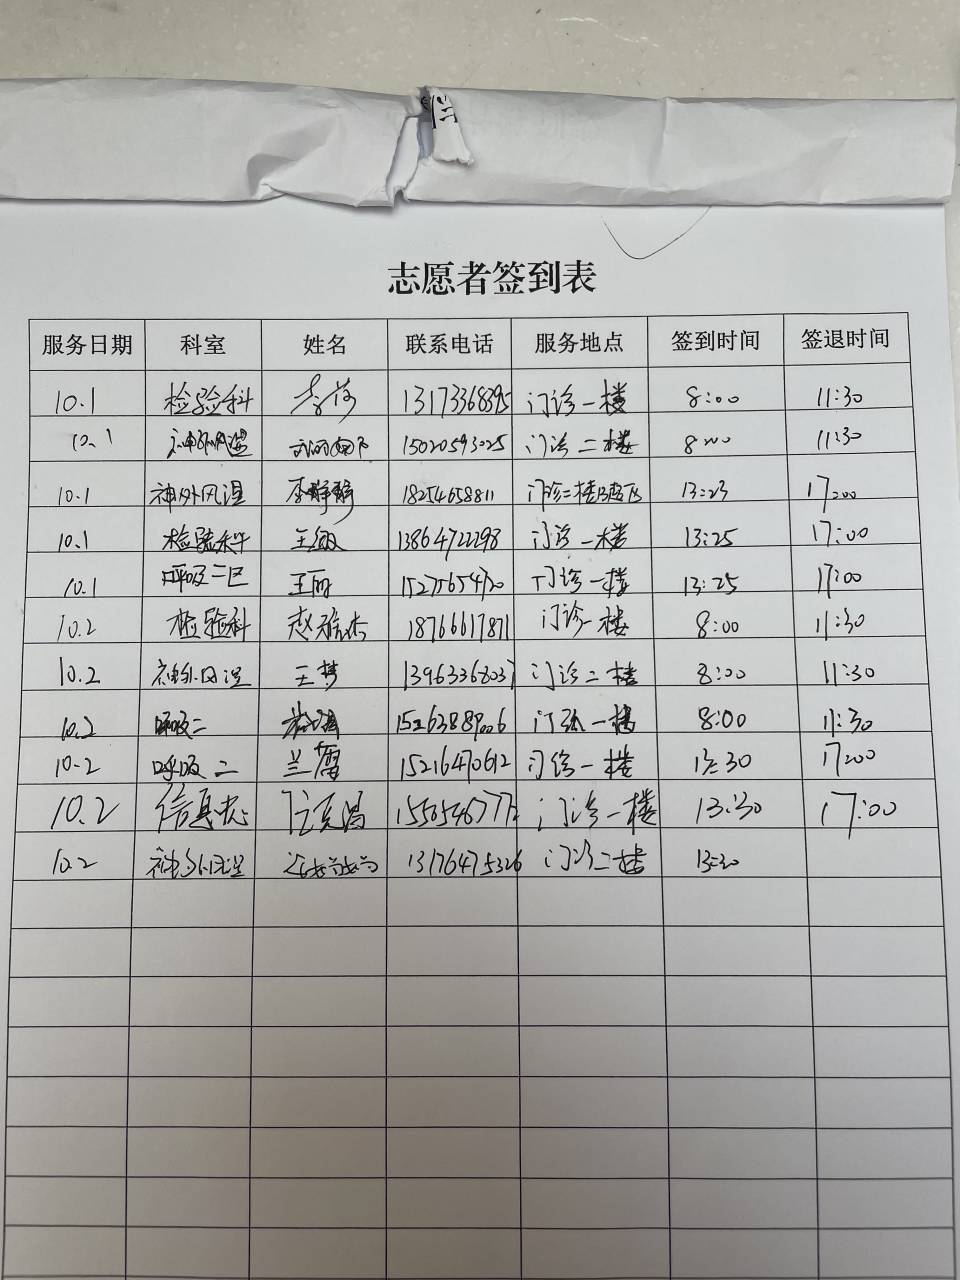 志愿者签到表
服务日期 科室 姓名 联系电话 服务地点 签到时间 签退时间
10.1 检验科 李荷 13173368395 门诊一楼 8:00 11:30
10.1 神外风湿 15020593025 门诊二楼 8:00 11:30
10.1 神外风湿 李静静 18254658811 门诊二楼 13:23 17:00
10.1 检验科 王敏 13864722298 门诊一楼 13:25 17:00
10.1 呼吸二区 王丽 15275654730 门诊一楼 13:25 17:00
10.2 检验科 赵 18766617871 门诊一楼 8:00 11:30
10.2 神外风湿 王梦 13963368037 门诊二楼 8:00 11:30
10.2 呼吸二 15263889006 门诊一楼 8:00 11:30
10.2 呼吸二 兰 15216470612 门诊一楼 13:30 17:00
10.2 信息 1556546777 门诊一楼 13:30 17:00
10.2 神外风湿 13176475326 门诊二楼 13:30